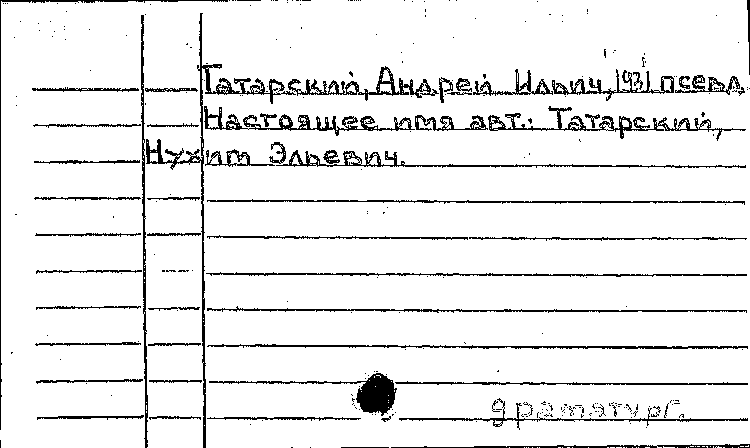 Татарский, Андрей Ильич, 1931 псевд
Настоящее имя авт.: Татарский,
Нухим Эльевич.
драматург.